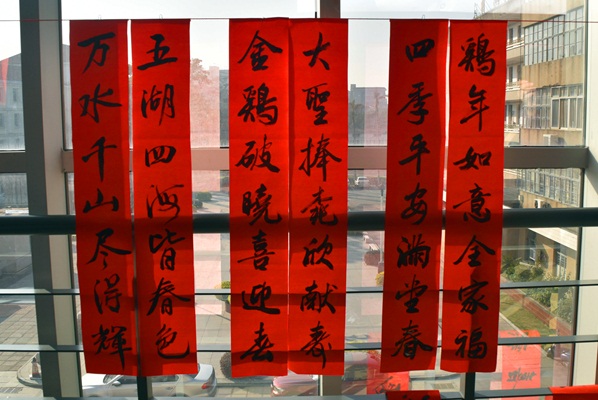 鶏年如意全家福
四季平安满堂春
大聖捧桃欣献寿
金鶏破曉喜迎春
五湖四海皆春色
万水千山尽得輝